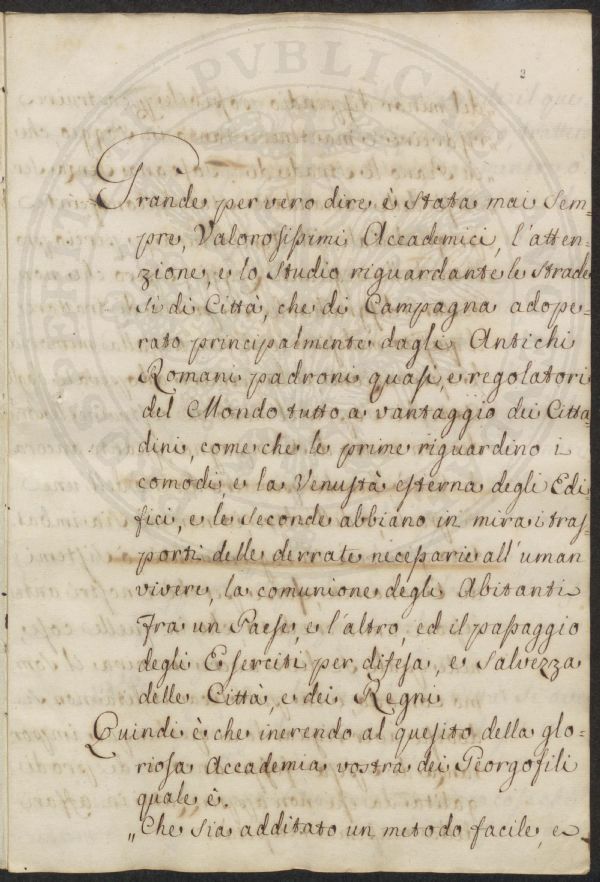 2
Grande per vero dire è stata mai sem=
pre, Valorosissimi Accademici, l'atten=
zione, e lo studio riguardante le strade
sì di Città, che di Campagna adope=
rato principalmente dagli Antichi
Romani padroni quasi, e regolatori
del Mondo tutto a vantaggio dei Citta=
dini, come che le prime riguardino i
comodi, e la Venustà esterna degli Edi
fici, e le seconde abbiano in mira i tras=
porti delle derrate necessarie all'uman
vivere, la comunione degli Abitanti
fra un Paese, e l'altro, ed il passaggio
degli Eserciti per difesa, e salvezza
delle Città, e dei Regni
Quindi è che inerendo al quesito della glo=
riosa Accademia vostra dei Georgofili
quale è.
„Che sia additato un metodo facile, e